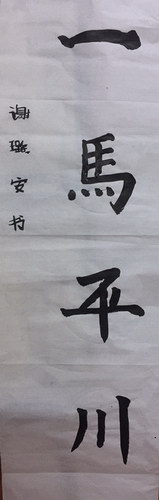 一馬平川
谢瑶安书